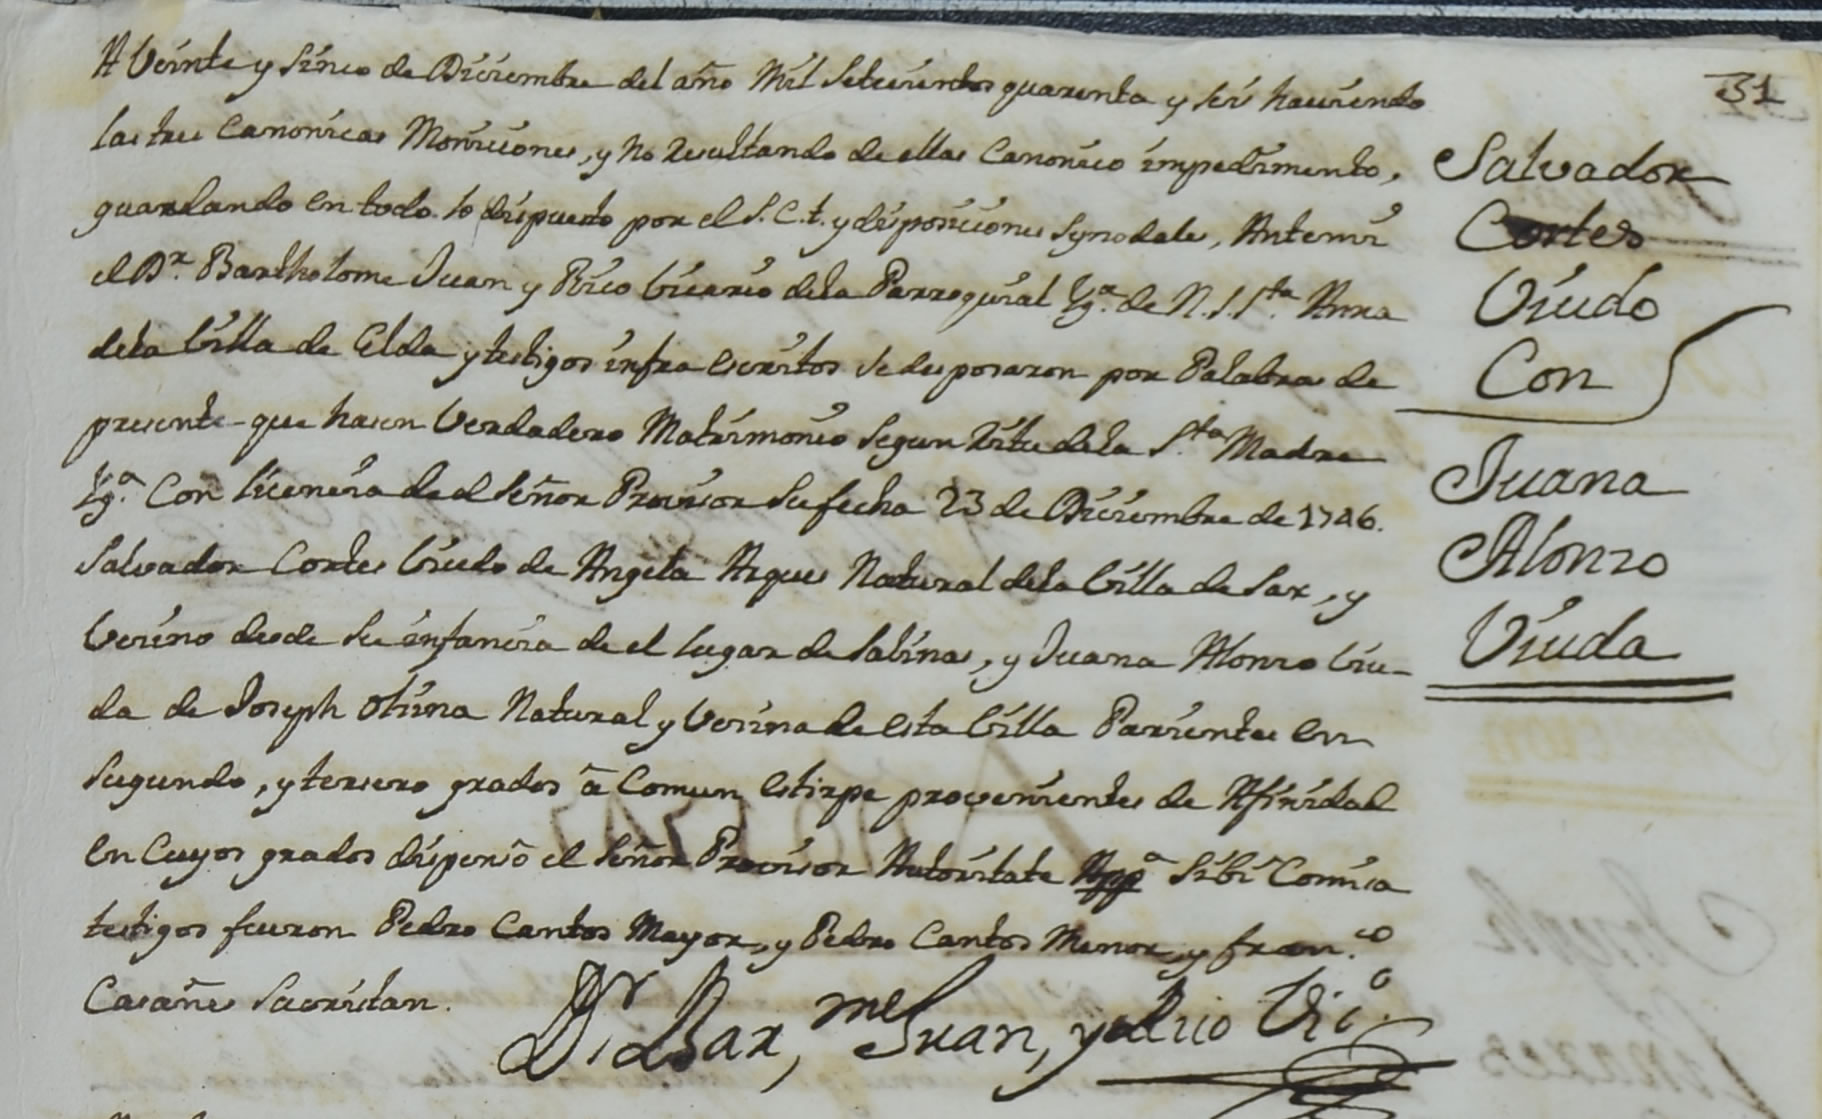 31
A Veinte y sinco de Disiembre del año Mil Setesientos quarenta y seis haviendo
las tres Canonicas Monisiones, y no Resultando de ellas Canonico impedimento,
guardando en todo lo dispuesto por el S. C. t. y disposisiones Synodales, Antemi
el Dr. Bartholome Juan y Rico Vicario dela Parroquial Yga. de N. S. Sta. Anna
dela Villa de Elda y testigos infra escritos se desposaron por Palabras de
presente que hasen Verdadero Matrimonio Segun Ritu dela Sta. Madre
Yga. Con lisensia de el Señor Provisor su fecha 23 de Disiembre de 1746.
Salvador Cortes Viudo de Angela Arques Natural dela Villa de Sax, y
Vesino desde su infansia de el lugar de Salinas, y Juana Alonso Viu-
da de Joseph Olsina Natural y Vesina de esta Villa Parientes en
Segundo, y tersero grados a Comun estirpe provenientes de Afinidad
en Cuyos grados dispensó el Señor Provisor Autoritate Appa. Sibi Comisa
testigos fueron Pedro Cantos Mayor, y Pedro Cantos Menor, y Fran.co
Casañes Sacristan.
Dr. Bar,me Juan, y Rico Vic.o
Salvador
Cortes
Viudo
Con
Juana
Alonso
Viuda